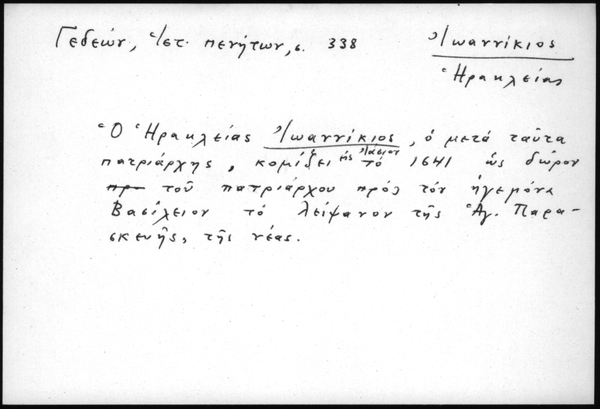 Γεδεών, Ἱστ. πενήτων, σ. 338
Ἰωαννίκιος
Ἡρακλείας
Ὁ Ἡρακλείας Ἰωαννίκιος, ὁ μετά ταῦτα
πατριάρχης, κομίζει εἰς Ἰάσιον τό 1641 ὡς δῶρον
τοῦ πατριάρχου πρός τόν ἡγεμόνα
Βασίλειον τό λείψανον τῆς Ἁγ. Παρα-
σκευῆς, τῆς νέας.